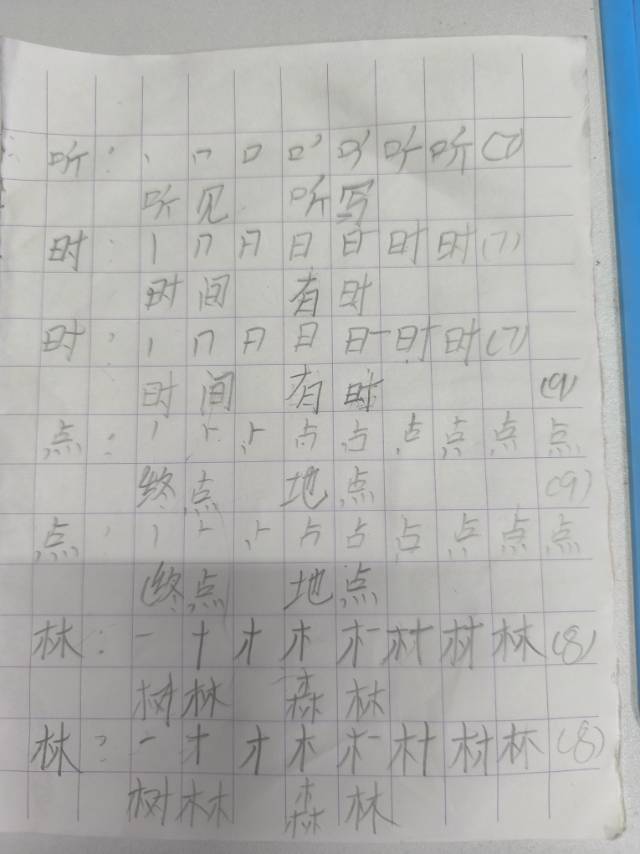 听：丨 冂 口 口' 叮 听 听(7)
听见 听写
时：丨 冂 日 日 旪 时 时(7)
时间 有时
时：丨 冂 日 日 日一 时 时(7)
时间 有时 (9)
点：丨 卜 ⺊ 占 占 点 点 点 点
终点 地点 (9)
点：丨 卜 ⺊ 占 占 点 点 点 点
终点 地点
林：一 十 才 木 木一 村 材 林(8)
树林 森林
林：一 十 才 木 木一 村 材 林(8)
树林 森林